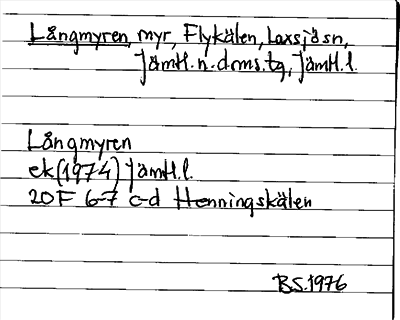 Långmyren, myr, Flykälen, Laxsjö sn,
Jämtl. n. dms. tg, Jämtl. l.
Långmyren
ek (1974) Jämtl. l.
20F 6-7 c-d Henningskälen
B.S. 1976